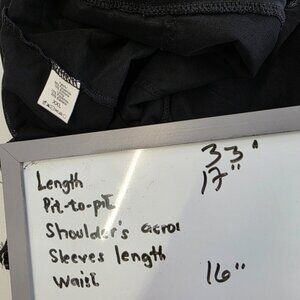 XXL
Length 33"
Pit-to-pit 17"
Shoulder's acros
Sleeves length
Waist 16"